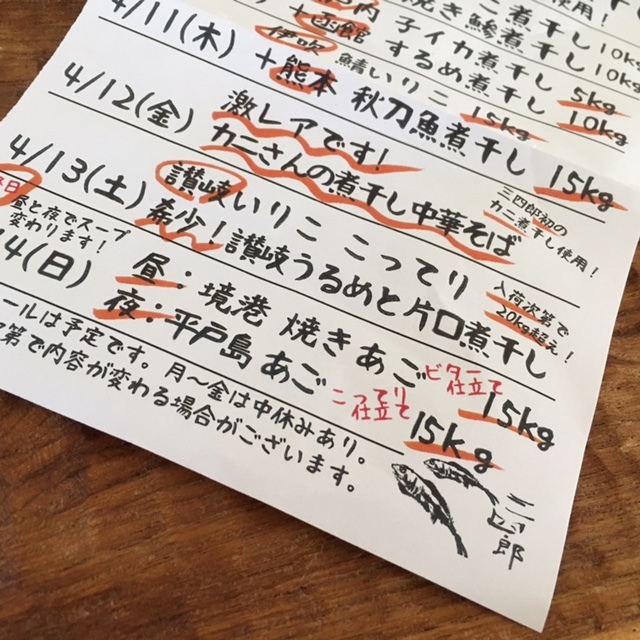 焼き鯵煮干し 10kg
内 子イカ煮干し 10kg
+函館 するめ煮干し 5kg
4/11(木) 伊吹 鯖いりこ 15kg 10kg
+熊本 秋刀魚煮干し 15kg
4/12(金) 激レアです!
カニさんの煮干し中華そば
三四郎初の
カニ煮干し使用!
4/13(土) 讃岐いりこ こってり
希少!讃岐うるめと片口煮干し
入荷次第で
20kg超え!
昼と夜でスープ
変わります!
14(日) 昼:境港 焼きあご ビター仕立て 15kg
夜:平戸島 あご こってり仕立て 15kg
ールは予定です。月〜金は中休みあり。
第で内容が変わる場合がございます。
三四郎